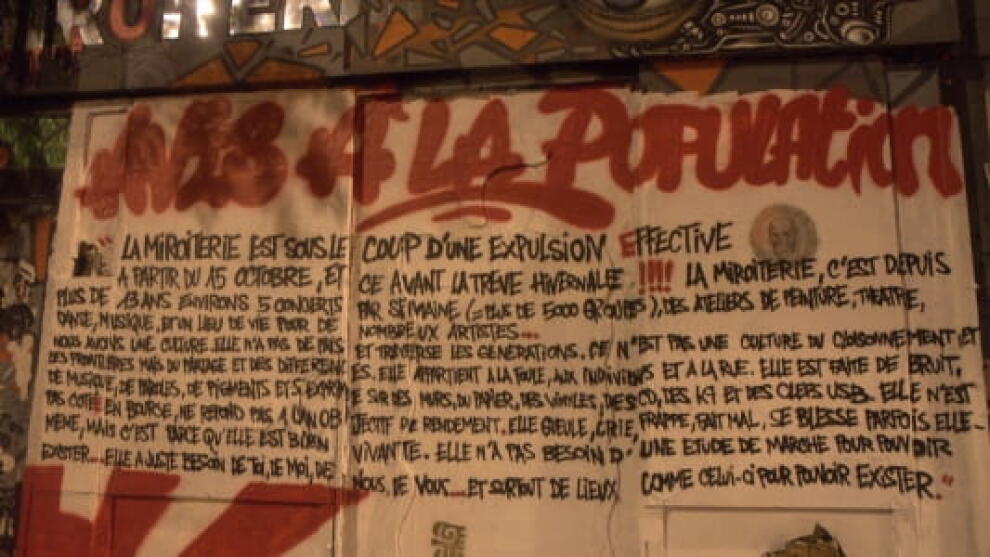 AVIS A LA POPULATION
"LA MIROITERIE EST SOUS LE COUP D'UNE EXPULSION EFFECTIVE
A PARTIR DU 15 OCTOBRE, ET CE AVANT LA TRÈVE HIVERNALE !!!! LA MIROITERIE, C'EST DEPUIS
PLUS DE 13 ANS ENVIRONS 5 CONCERTS PAR SEMAINE (= PLUS DE 5000 GROUPES), DES ATELIERS DE PEINTURE, THEATRE,
DANSE, MUSIQUE, ET UN LIEU DE VIE POUR DE NOMBREUX ARTISTES....
NOUS AVONS UNE CULTURE. ELLE N'A PAS DE PAYS ET TRAVERSE LES GENERATIONS. CE N'EST PAS UNE CULTURE DU CLOISONNEMENT ET
DES FRONTIERES MAIS DU PARTAGE ET DES DIFFERENCES. ELLE APPARTIENT A LA FOULE, AUX INDIVIDUS ET A LA RUE. ELLE EST FAITE DE BRUIT,
DE MUSIQUE, DE PAROLES, DE PIGMENTS ET S'EXPRIME SUR DES MURS, DU PAPIER, DES VINYLES, DES CD, DES K7 ET DES CLEFS USB. ELLE N'EST
PAS COTÉE EN BOURSE, NE REPOND PAS A UN OBJECTIF DE RENDEMENT. ELLE GUEULE, CRIE, FRAPPE, FAIT MAL, SE BLESSE PARFOIS ELLE-
MEME, MAIS C'EST PARCE QU'ELLE EST BIEN VIVANTE. ELLE N'A PAS BESOIN D' UNE ETUDE DE MARCHE POUR
EXISTER.... ELLE A JUSTE BESOIN DE TOI, DE MOI, DE NOUS, DE VOUS.... ET SURTOUT DE LIEUX COMME CELUI-CI POUR POUVOIR EXISTER."